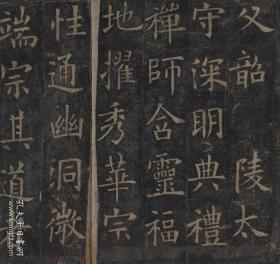 父韶陵太
守深明典禮
禪師含靈福
地擢秀華宗
性通幽洞微
端宗其道
孔夫子旧书网